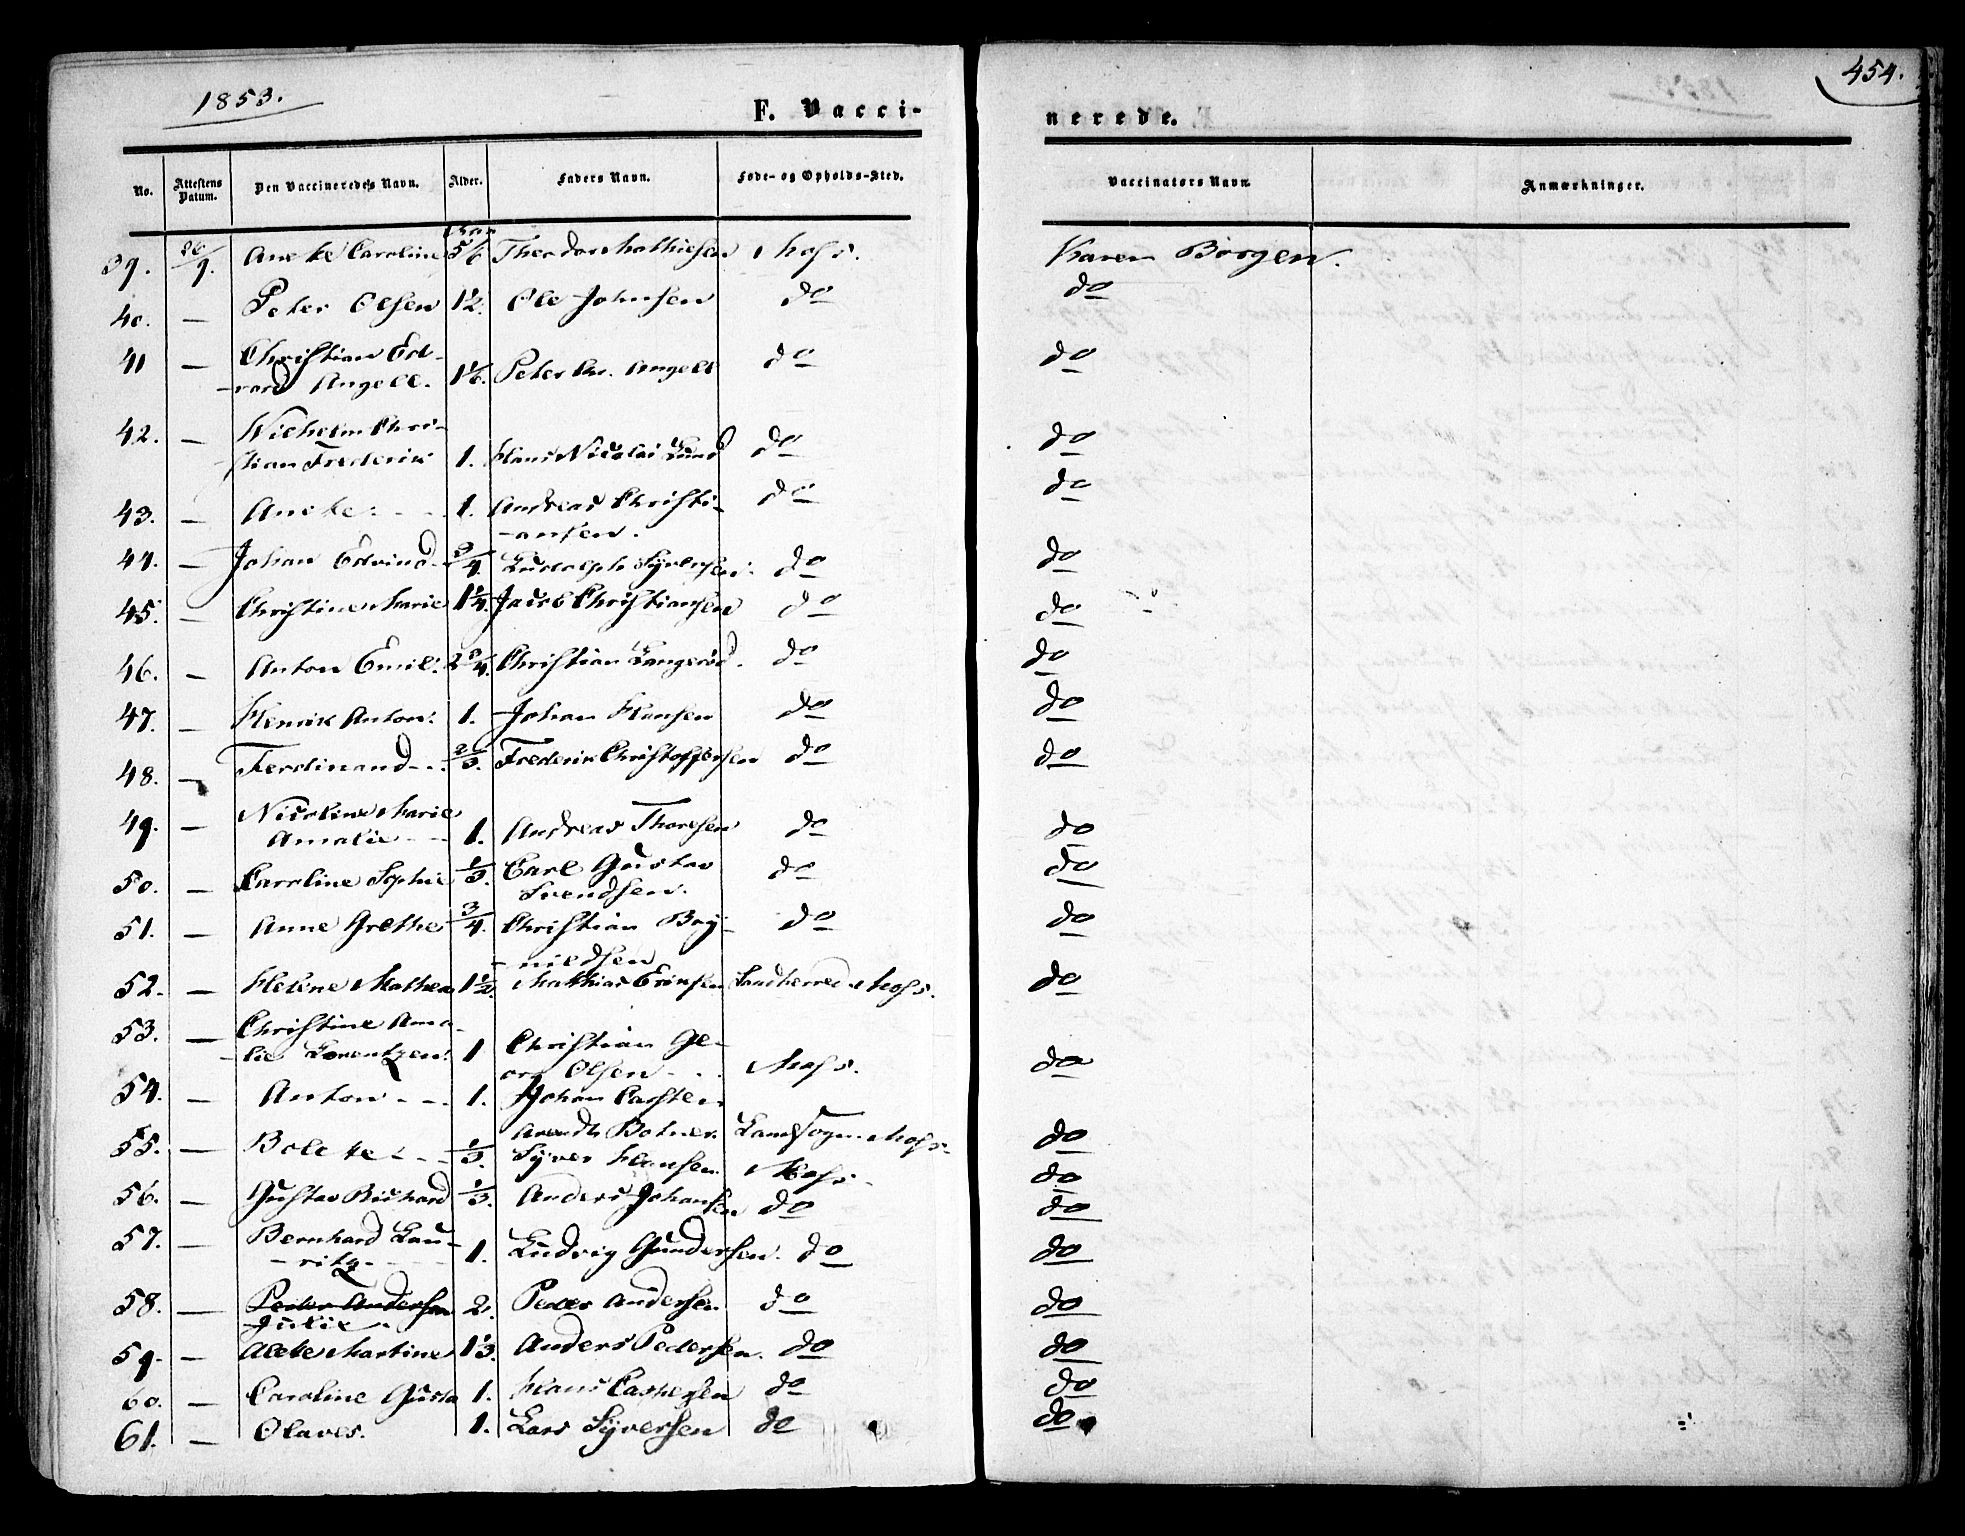 1853.
454.
F. Vacci-
nerede.
No. Attestens Datum. Den Vaccineredes Navn. Alder. Faders Navn. Føde- og Opholds-Sted. Vaccinators Navn. Anmærkninger.
39. 26/9. Anette Caroline 5/6 Theodor Mathiesen Moss. Karen Borgen.
40. — Peter Olsen 1½. Ole Johnsen do do
41 — Christian Ed-
vard Angell. 1⅙. Peter Chr. Angell do do
42. — Wilhelm Chri-
stian Frederik 1. Hans Nicolai Lund do do
43. — Anette - - - 1. Andreas Christi-
-ansen. do do
44. — Johan Edvind - 3/4. Ludolph Syversen. do do
45. — Christine Marie 1¼. Jacob Christiansen do do
46. — Anton Emil. 2 3/4. Christian Langerød. do do
47. — Henrik Anton. 1. Johan Hansen do do
48. — Ferdinand - - . 2/3. Frederik Christoffersen do do
49. — Nicoline Marie
Amalie - - - 1. Andreas Thoresen do do
50. — Caroline Sophie 1/3. Carl Gustav
Svendsen. do do
51. — Anne Grethe 3/4. Christian Bry-
-nildsen do do
52. — Helene Mathea 1½. Mathias Eriksen Landherred Moss. do
53. — Christine Ama-
-lie Lorentzen. 1 Christian Ge-
org Olsen - . . Moss. do
54. — Anton - - - 1. Johan Carsten
Arendt Botner. Landsogn Moss. do
55. — Bolette - - - 1/3. Syver Hansen. Moss. do
56. — Gustav Richard 1/3. Anders Johansen do do
57. — Bernhard Lau-
-ritz - - - 1. Ludvig Gundersen. do do
58. — Peder Andersen 2. Peder Andersen do do
Julie.
59. — Alette Martine 1⅓. Anders Pedersen. do do
60. — Caroline Gusta 1. Hans Caspersen do do
61. — Olaves. 1. Lars Syversen do do